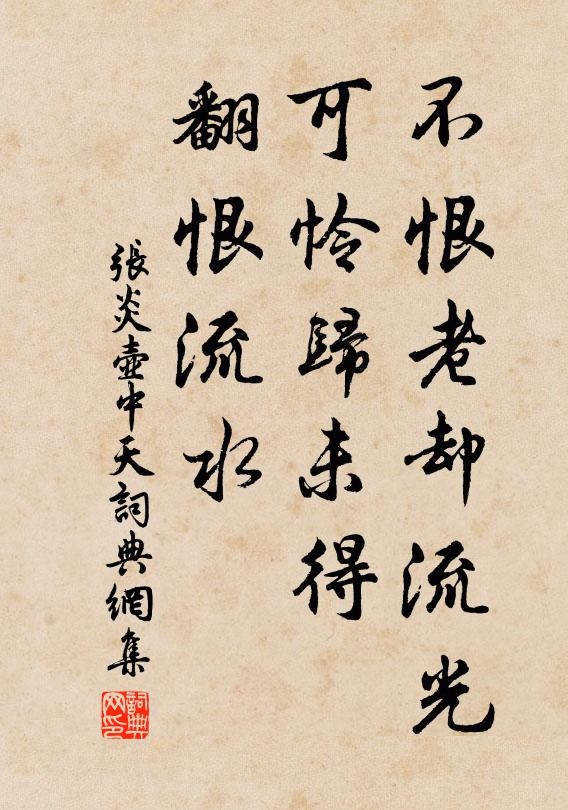 不恨老却流光
可怜歸未得
翻恨流水
張炎壺中天詞典網集
詞典网印